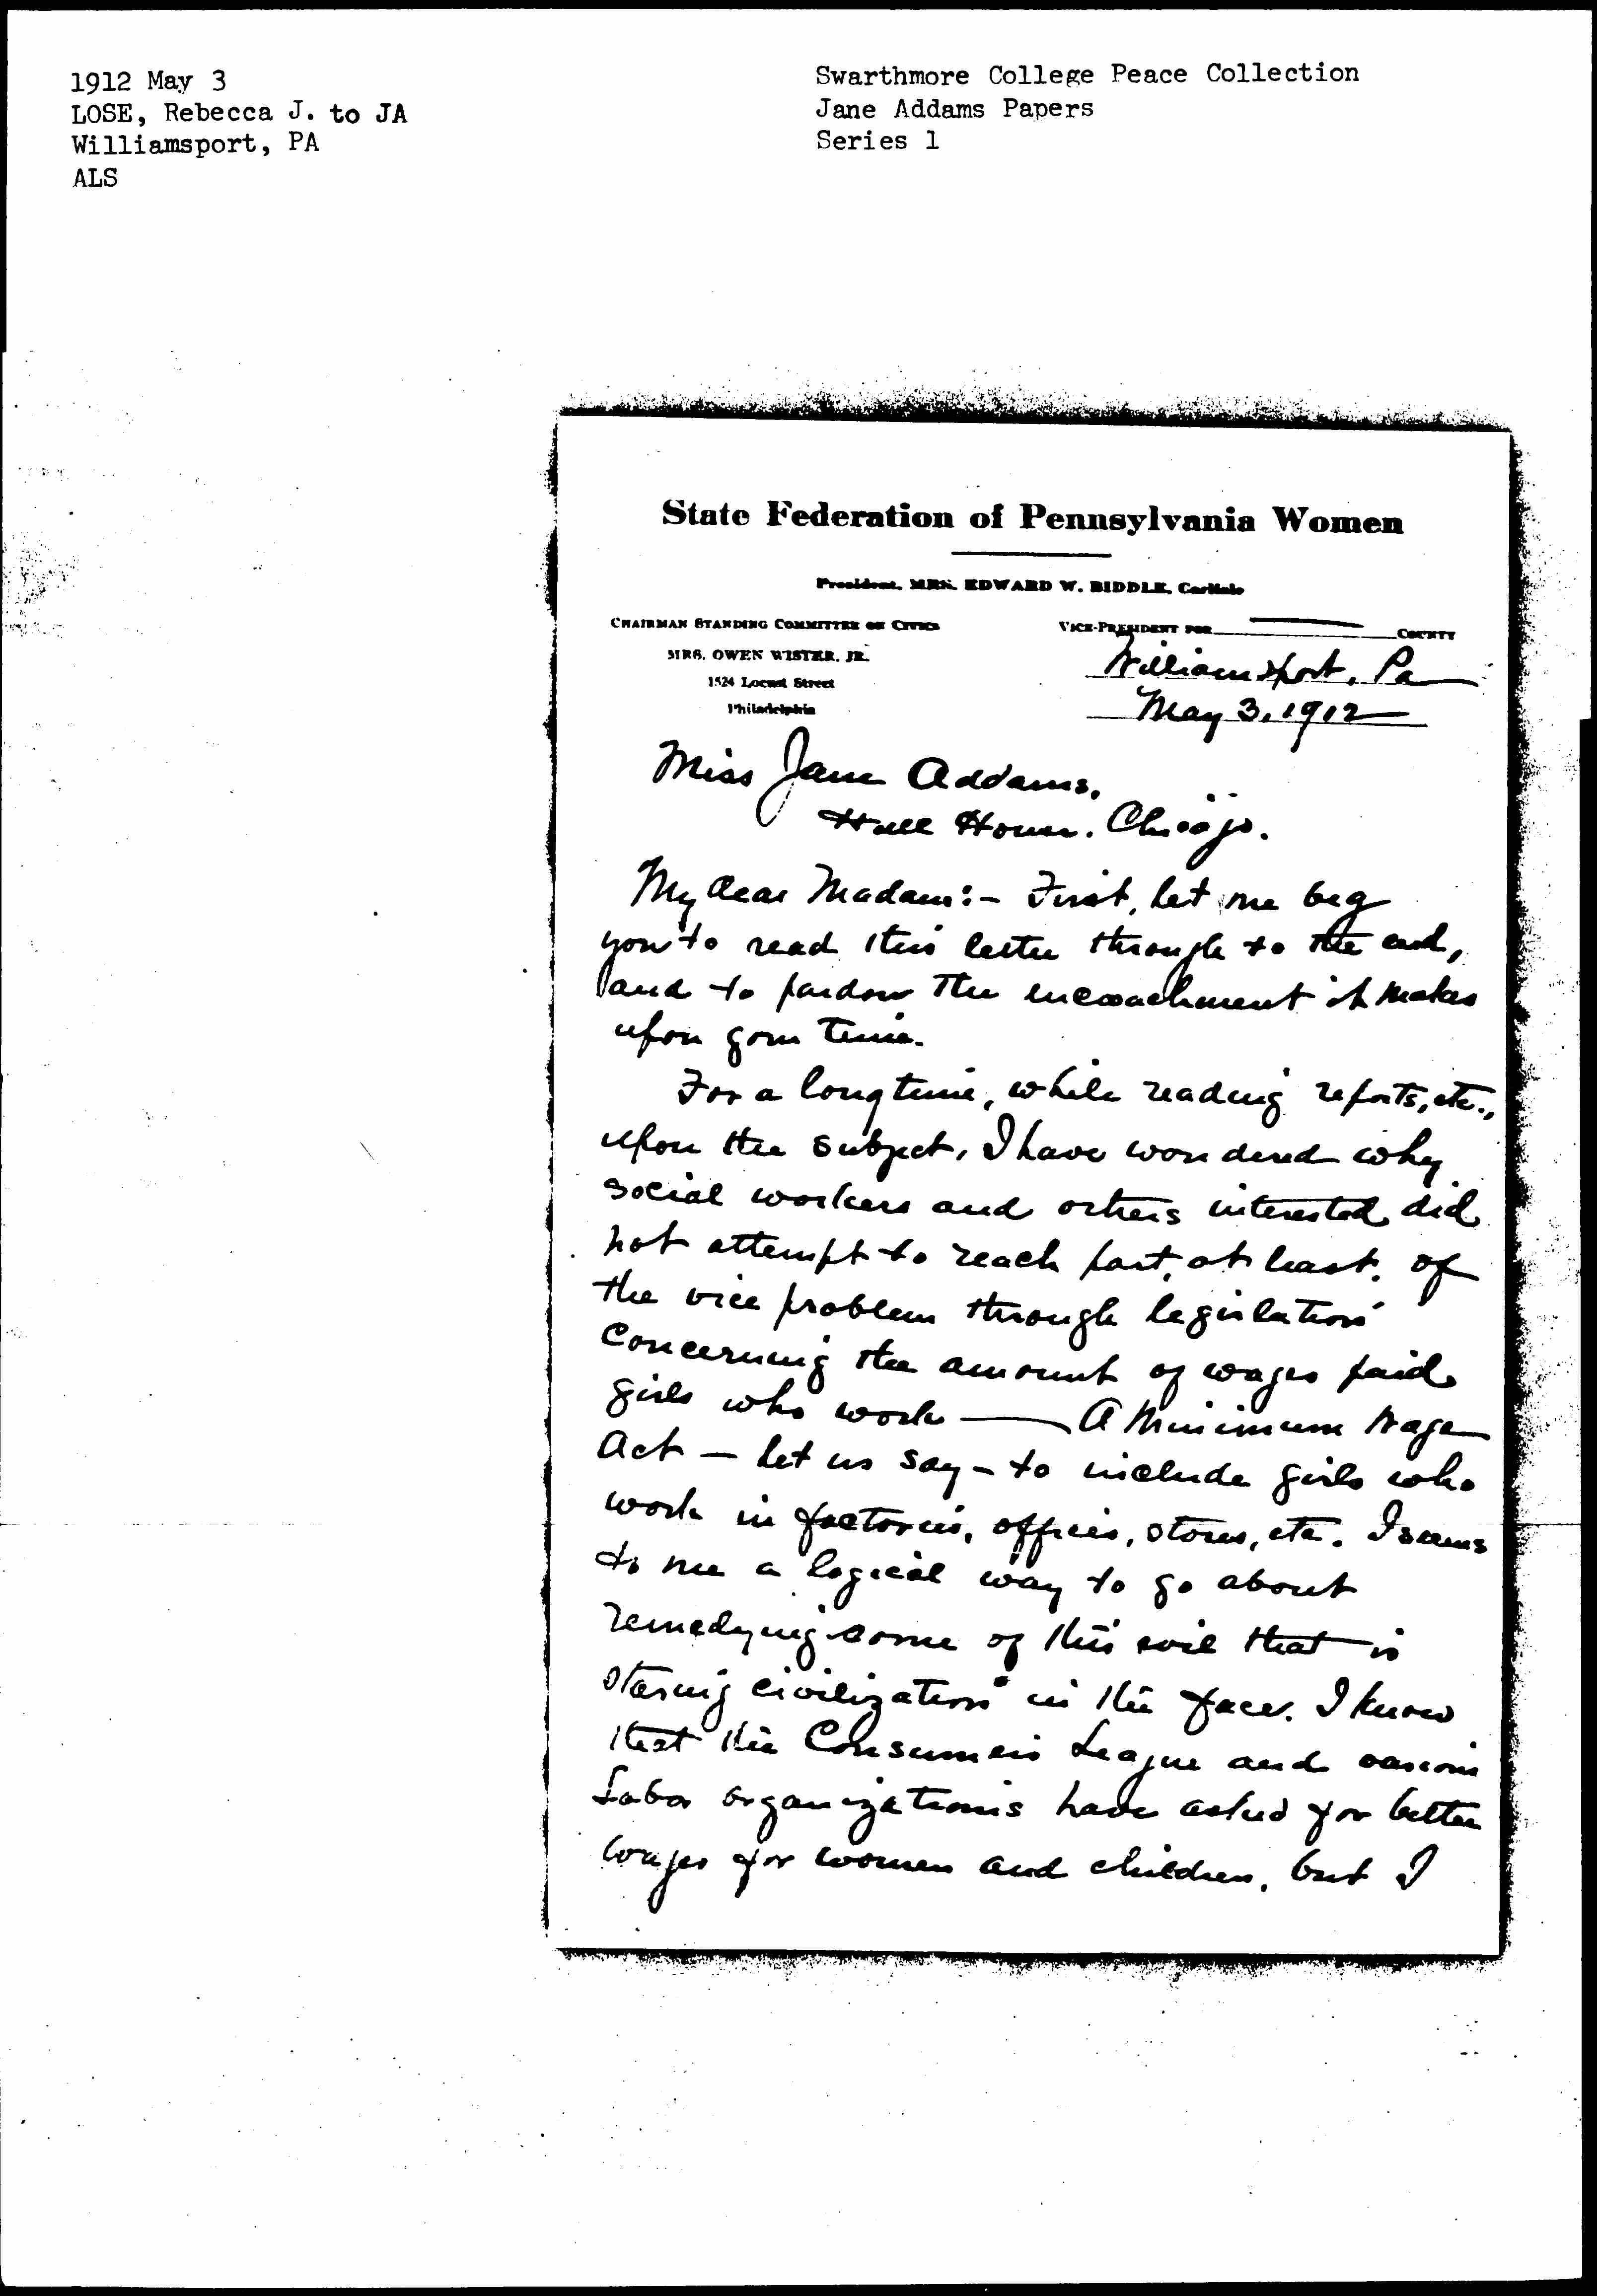 1912 May 3
LOSE, Rebecca J. to JA
Williamsport, PA
ALS
Swarthmore College Peace Collection
Jane Addams Papers
Series 1
State Federation of Pennsylvania Women
President, MRS. EDWARD W. BIDDLE, Carlisle
CHAIRMAN STANDING COMMITTEE ON CIVICS
MRS. OWEN WISTER, JR.
1524 Locust Street
Philadelphia
VICE-PRESIDENT FOR COUNTY
Williamsport, Pa
May 3, 1912
Miss Jane Addams,
Hull House, Chicago.
My dear Madam:- First, let me beg
you to read this letter through to the end,
and to pardon the encroachment it makes
upon your time.
For a long time, while reading reports, etc.,
upon the subject, I have wondered why
social workers and others interested did
not attempt to reach part, at least, of
the vice problem through legislation
concerning the amount of wages paid
girls who work — A Minimum Wage
Act — let us say - to include girls who
work in factories, offices, stores, etc. I seems
to me a logical way to go about
remedying some of this evil that is
staring civilization in the face. I know
that the Consumers League and various
Labor organizations have asked for better
wages for women and children, but I